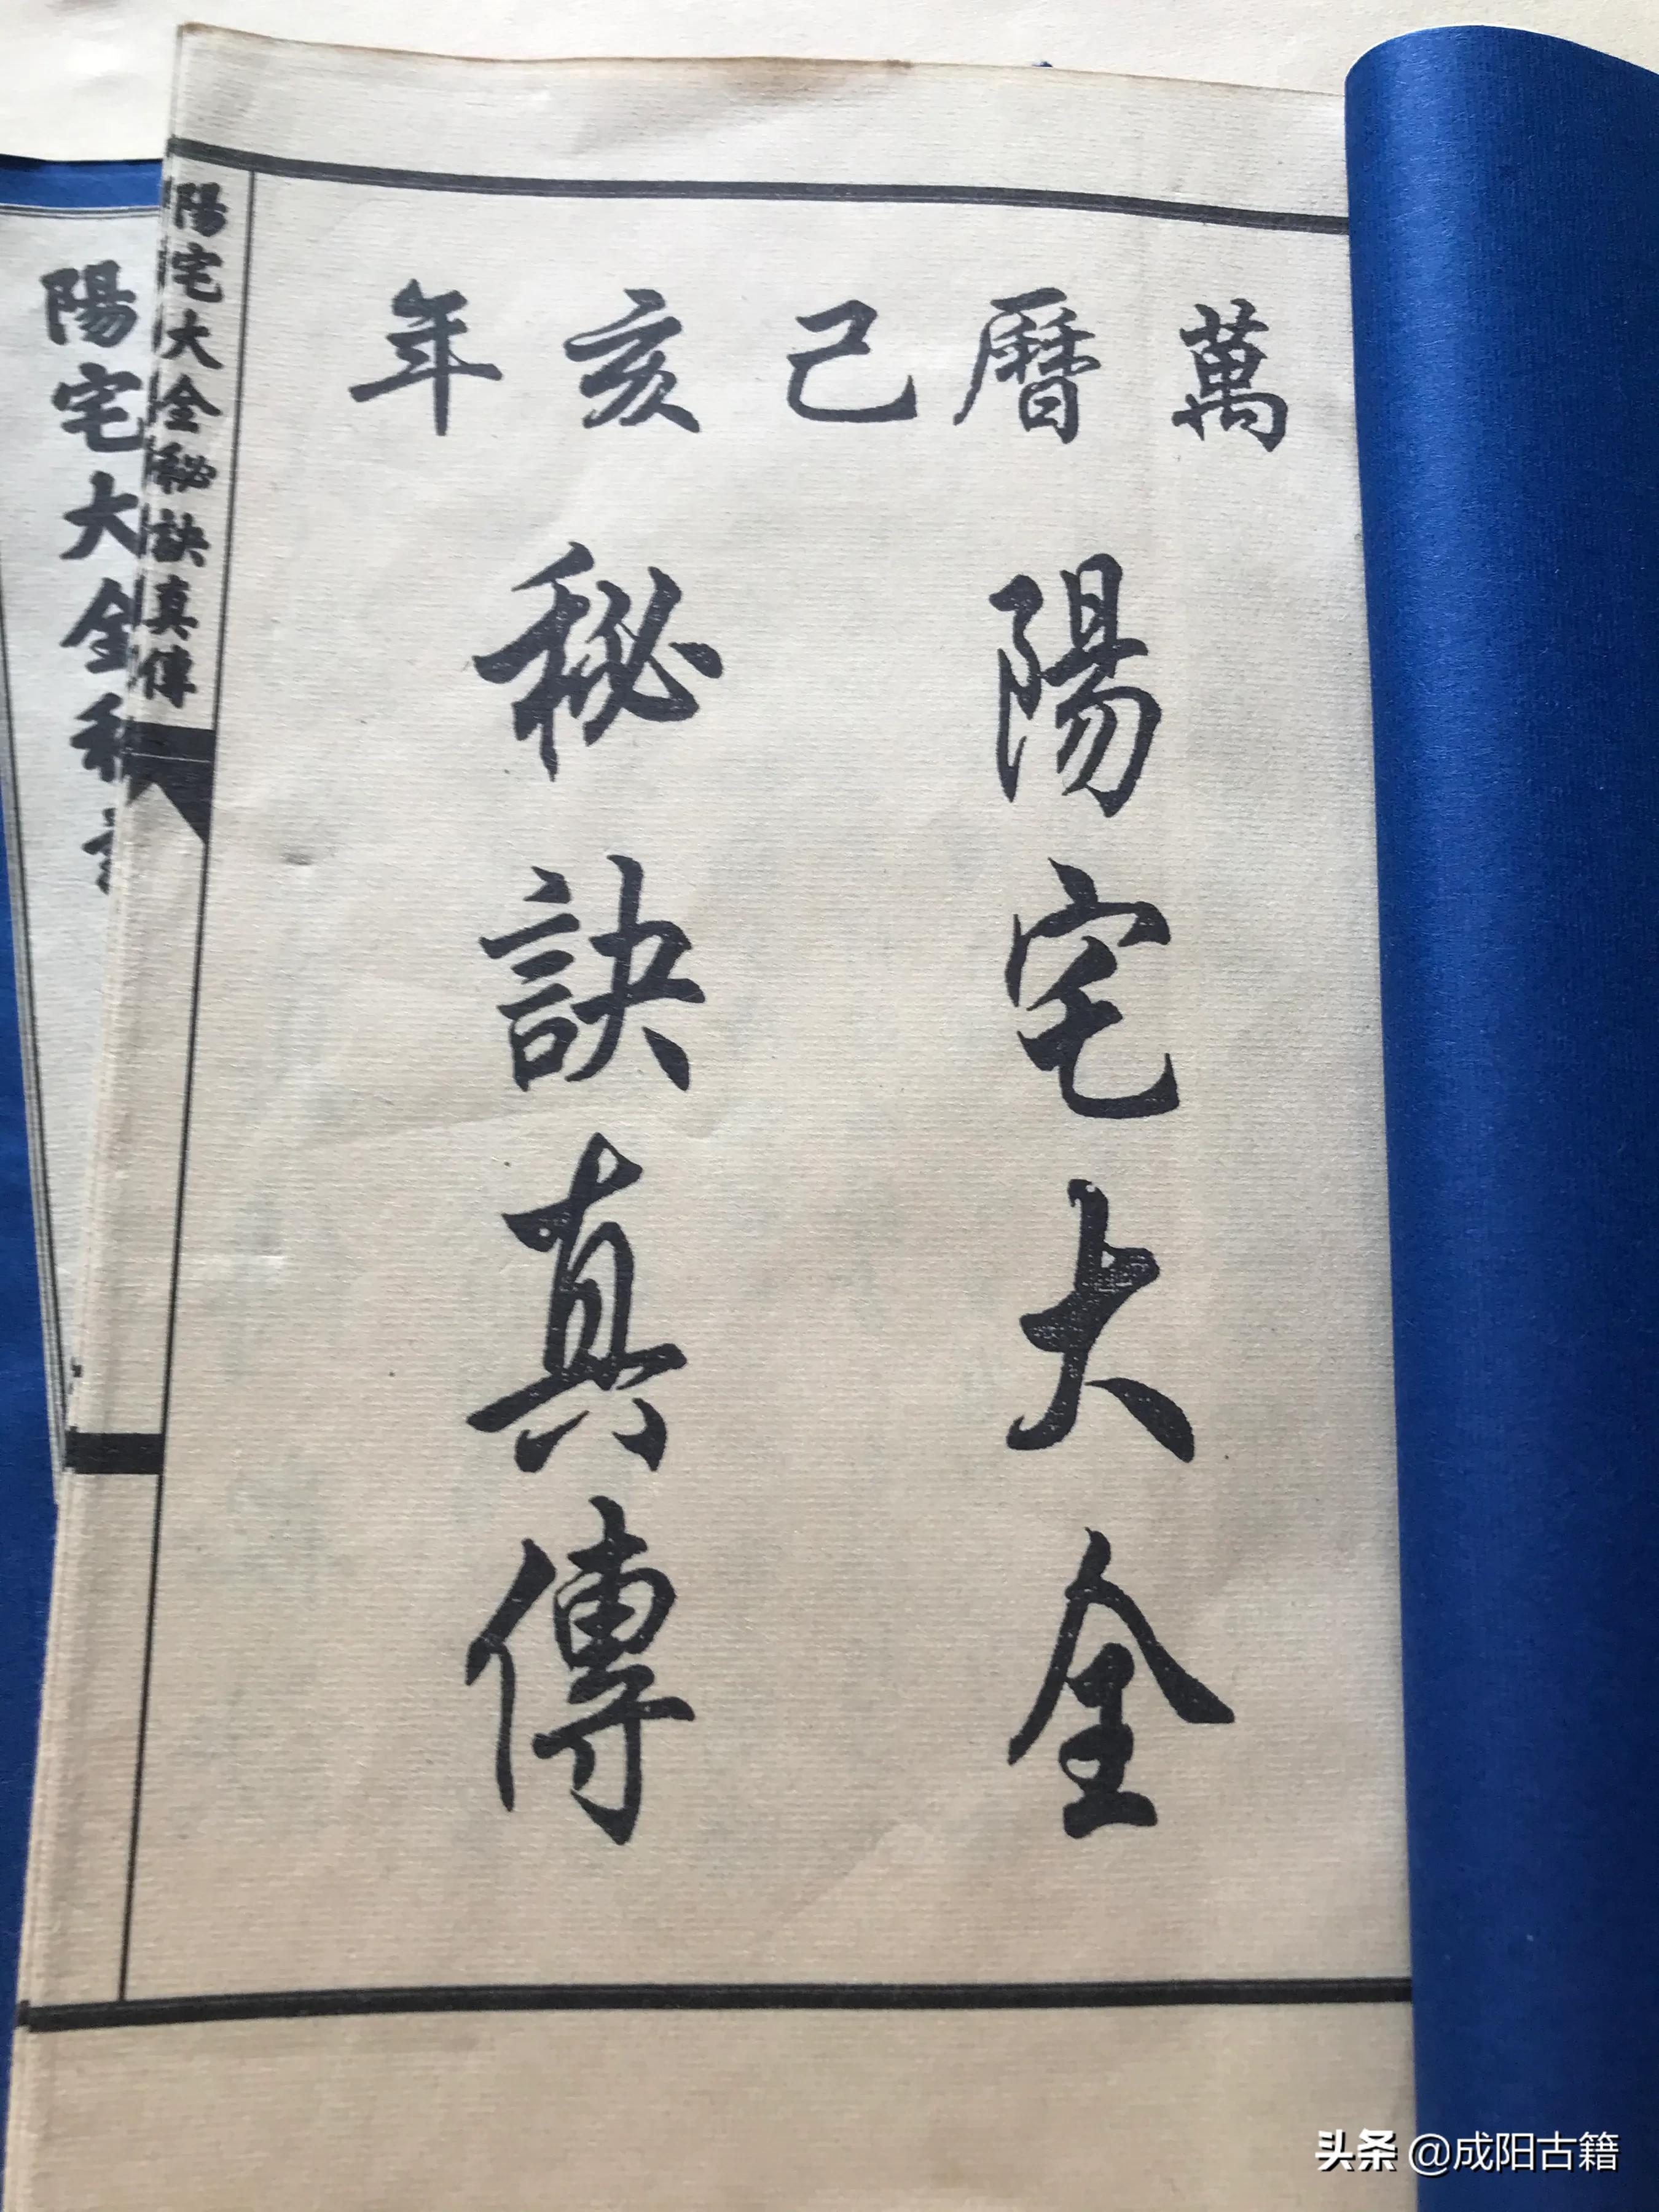 萬曆己亥年
陽宅大全
秘訣真傳
陽宅大全秘訣真傳
陽宅大全秘
头条 @成阳古籍